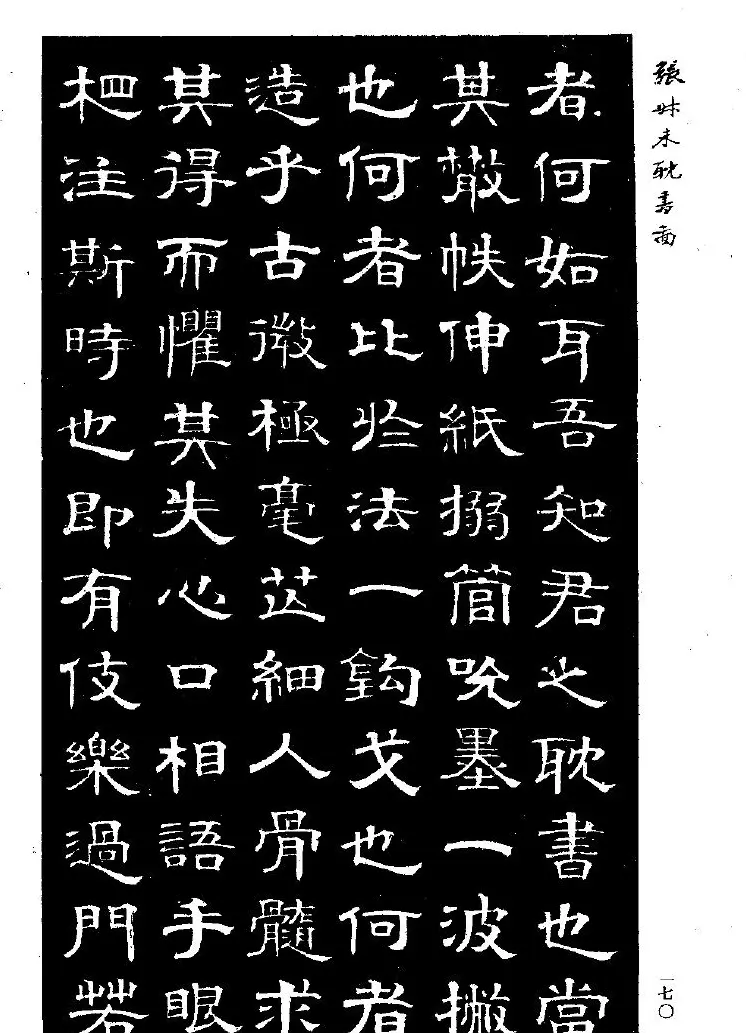 張叔未耽書啚
者何如耳吾知君之耽書也當
其散帙伸紙搦管吮墨一波撇
也何者比於法一鉤戈也何者
造乎古微極毫芒細入骨髓求
其得而懼其失心口相語手眼
把注斯時也即有伎樂過門若
一七〇